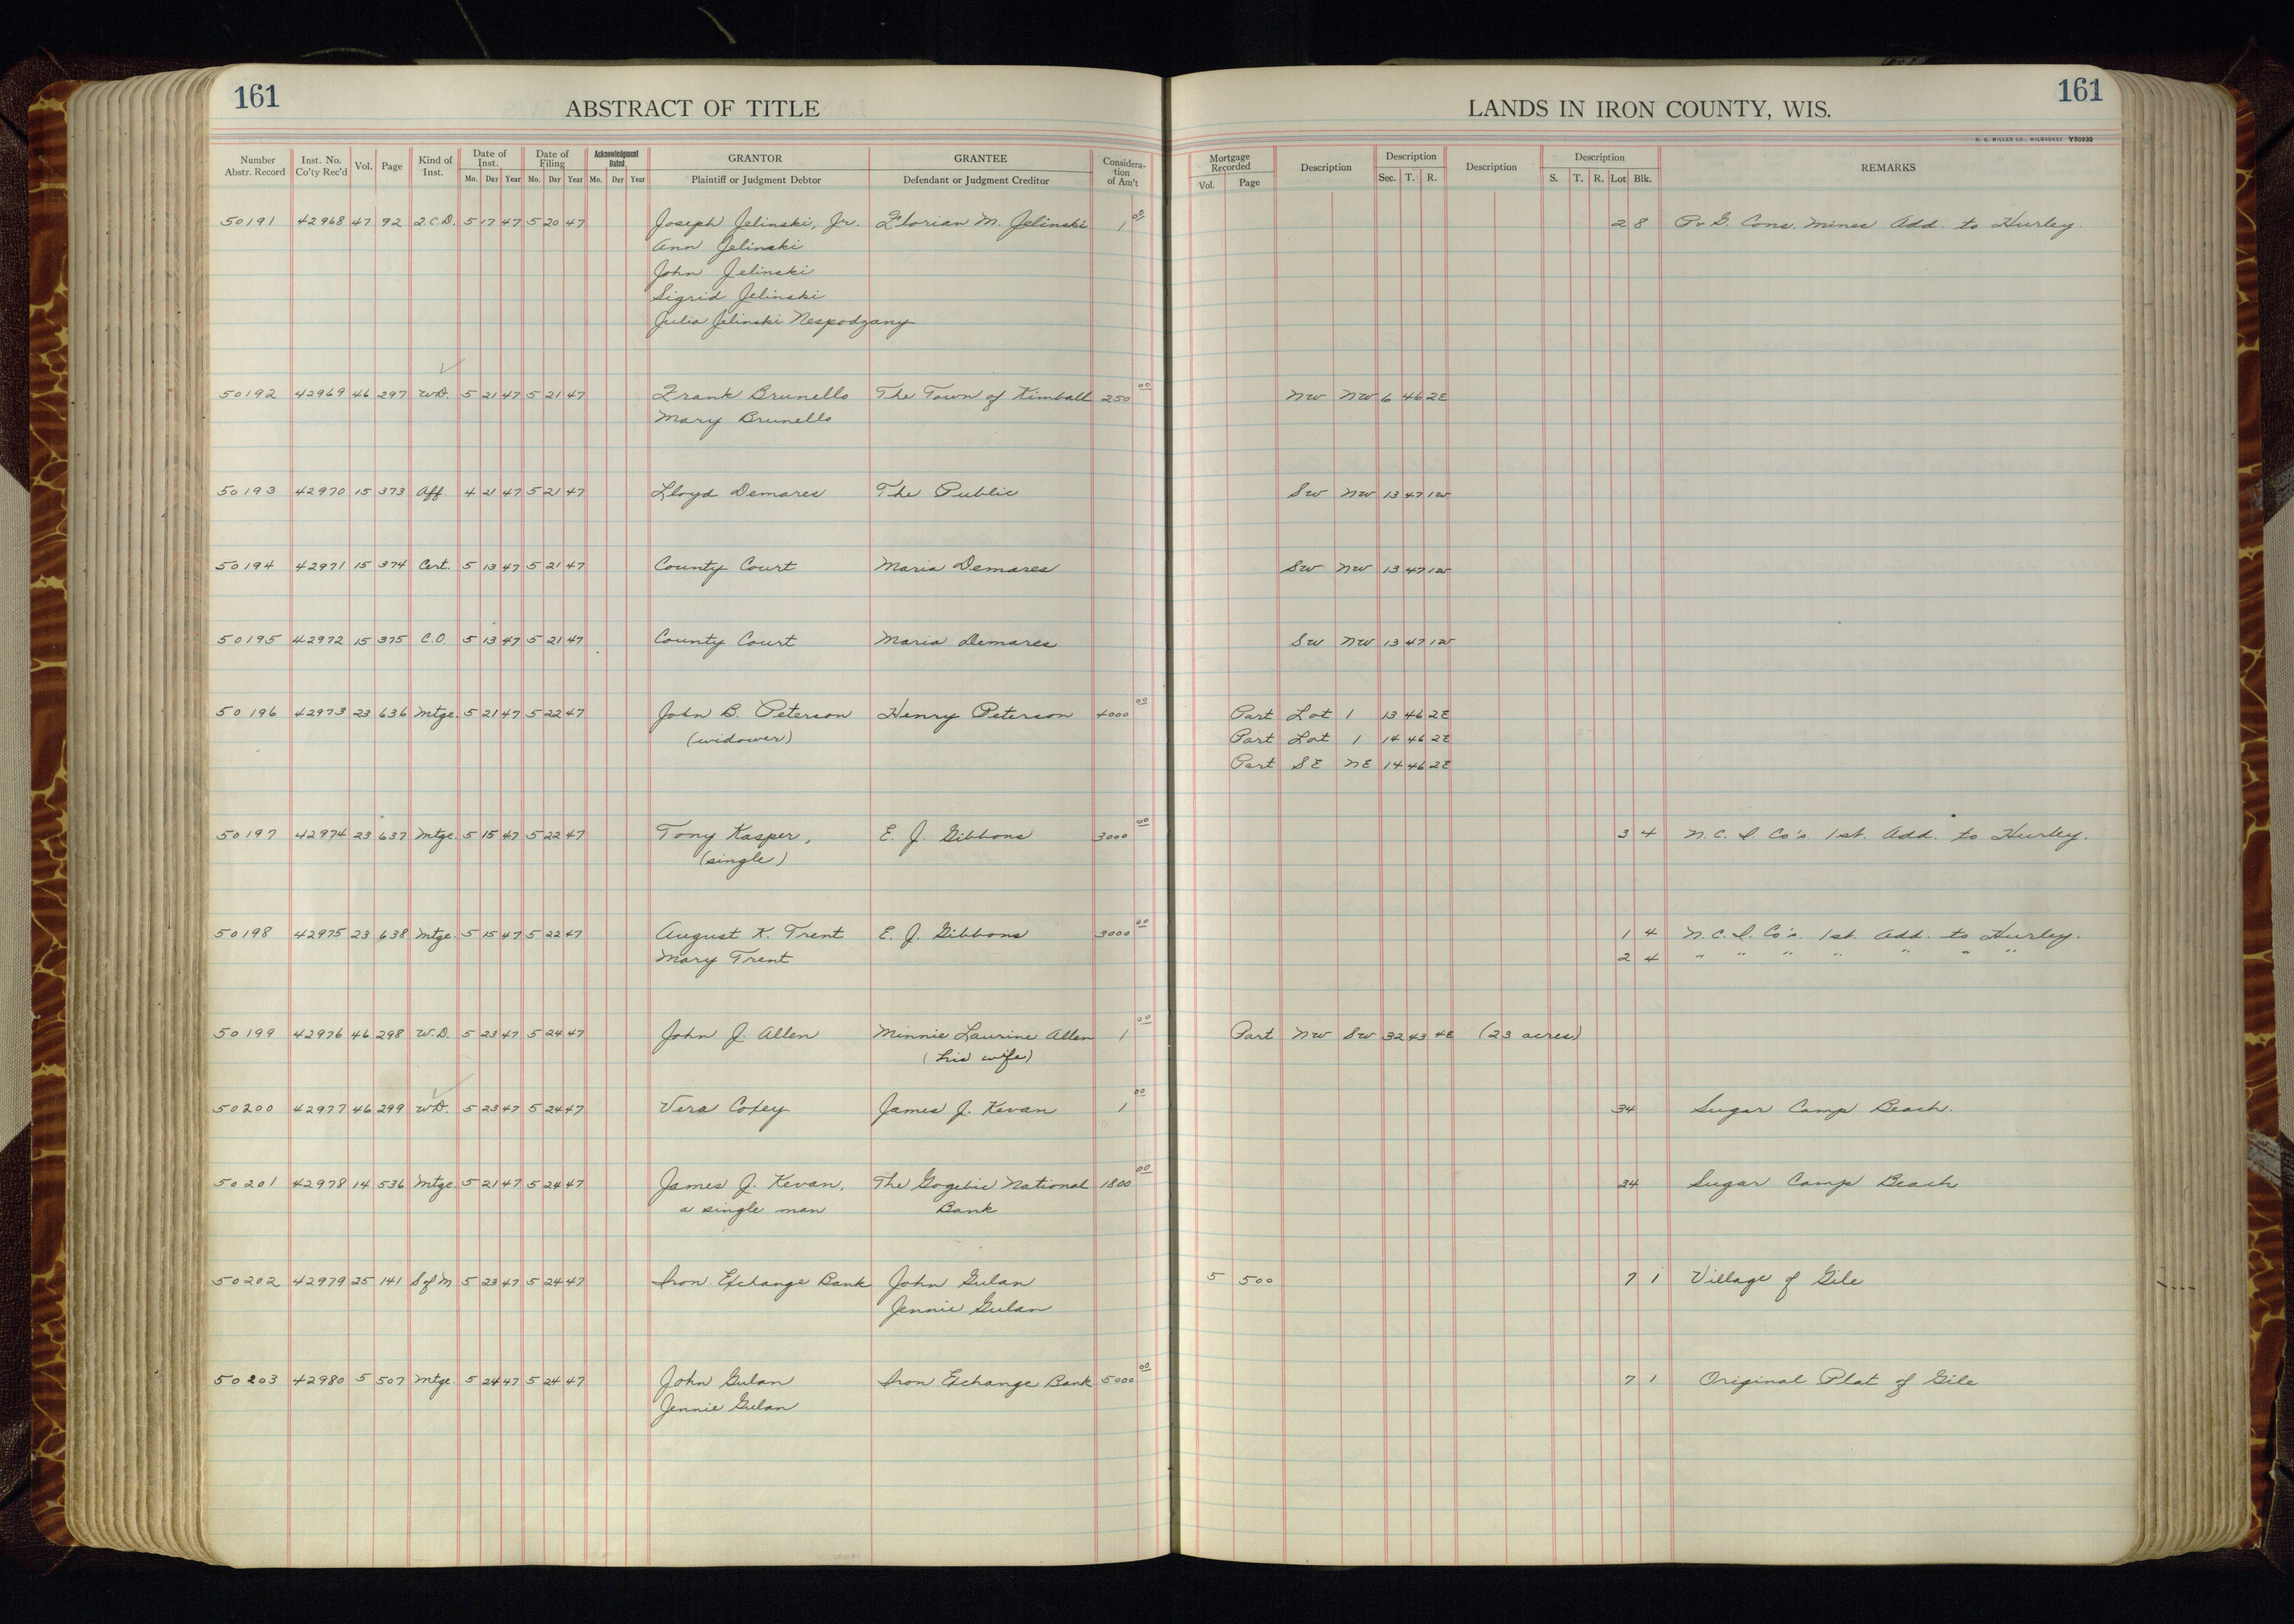 161
ABSTRACT OF TITLE
LANDS IN IRON COUNTY, WIS.
161
H. C. MILLER CO., MILWAUKEE Y50930
Number Abstr. Record | Inst. No. Co'ty Rec'd | Vol. | Page | Kind of Inst. | Date of Inst. Mo. Day Year | Date of Filing Mo. Day Year | Acknowledgment Dated Mo. Day Year | GRANTOR Plaintiff or Judgment Debtor | GRANTEE Defendant or Judgment Creditor | Consideration of Am't | Mortgage Recorded Vol. Page | Description | Description Sec. T. R. | Description | Description S. T. R. Lot Blk. | REMARKS
50191 42968 47 92 Q.C.D. 5 17 47 5 20 47 Joseph Jelinski, Jr. Florian M. Jelinski 1 00 2 8 P. & G. Cons. Mines Add. to Hurley.
Ann Jelinski
John Jelinski
Sigrid Jelinski
Julia Jelinski Nespodzany
50192 42969 46 297 W.D. 5 21 47 5 21 47 Frank Brunello The Town of Kimball 250 00 NW NW 6 46 2E
Mary Brunello
50193 42970 15 373 Aff. 4 21 47 5 21 47 Lloyd Demares The Public SW NW 13 47 1W
50194 42971 15 374 Cert. 5 13 47 5 21 47 County Court Maria Demares SW NW 13 47 1W
50195 42972 15 375 C.O. 5 13 47 5 21 47 County Court Maria Demares SW NW 13 47 1W
50196 42973 23 636 Mtge. 5 21 47 5 22 47 John B. Peterson Henry Peterson 4000 00 Part Lot 1 13 46 2E
(widower) Part Lot 1 14 46 2E
Part SE NE 14 46 2E
50197 42974 23 637 Mtge. 5 15 47 5 22 47 Tony Kasper, E. J. Gibbons 3000 00 3 4 N. C. I. Co's 1st. Add. to Hurley.
(single)
50198 42975 23 638 Mtge. 5 15 47 5 22 47 August K. Trent E. J. Gibbons 3000 00 1 4 N. C. I. Co's. 1st. Add. to Hurley.
Mary Trent 2 4 " " " " " " "
50199 42976 46 298 W.D. 5 23 47 5 24 47 John J. Allen Minnie Laurine Allen 1 00 Part NW SW 32 43 4E (23 acres)
(his wife)
50200 42977 46 299 W.D. 5 23 47 5 24 47 Vera Coxey James J. Kevan 1 00 34 Sugar Camp Beach.
50201 42978 14 536 Mtge. 5 21 47 5 24 47 James J. Kevan, The Gogebic National 1800 00 34 Sugar Camp Beach
a single man Bank
50202 42979 25 141 S of M 5 23 47 5 24 47 Iron Exchange Bank John Gulan 5 500 7 1 Village of Gile
Jennie Gulan
50203 42980 5 507 Mtge. 5 24 47 5 24 47 John Gulan Iron Exchange Bank 5000 00 7 1 Original Plat of Gile
Jennie Gulan